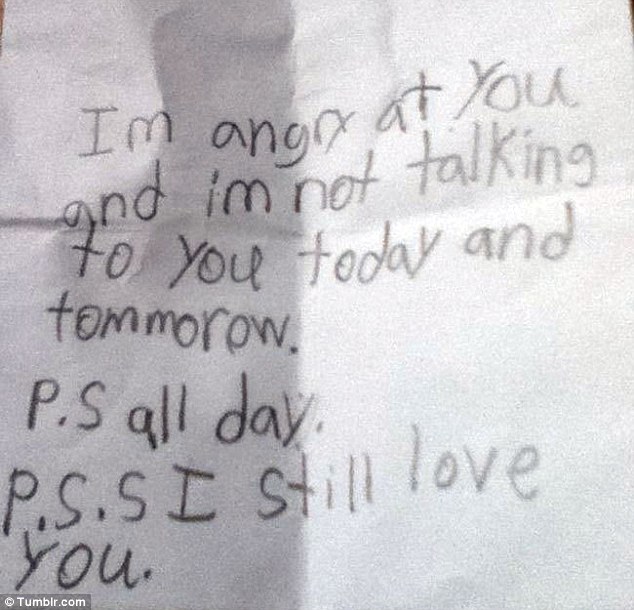 Im angry at you
and im not talking
to you today and
tommorow.
P.S all day.
P.S.S I still love
you.
© Tumblr.com